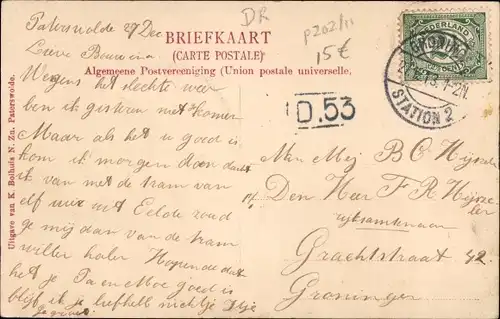 Paterswolde 27 Dec
DR
p202/11
15€
BRIEFKAART
(CARTE POSTALE)
Algemeene Postvereeniging (Union postale universelle.
NEDERLAND
GRONINGEN
STATION 2
D.53
Uitgave van K. Bolhuis N. Zn. Paterswolde.
Lieve Bouwina
Wegens het slechte weer
ben ik gisteren niet komen
Maar als het u goed is
kom ik morgen dan dacht
ik van met de tram van
elf uur uit Eelde zoud
ge mij dan van de tram
willen halen Hopende dat
het je Pa en Moe goed is
blijf ik je liefheb nichtje
gegroet
Aan Mej B C
p/a Den Heer F R
rijksambtenaar
Grachtstraat 42
Groningen